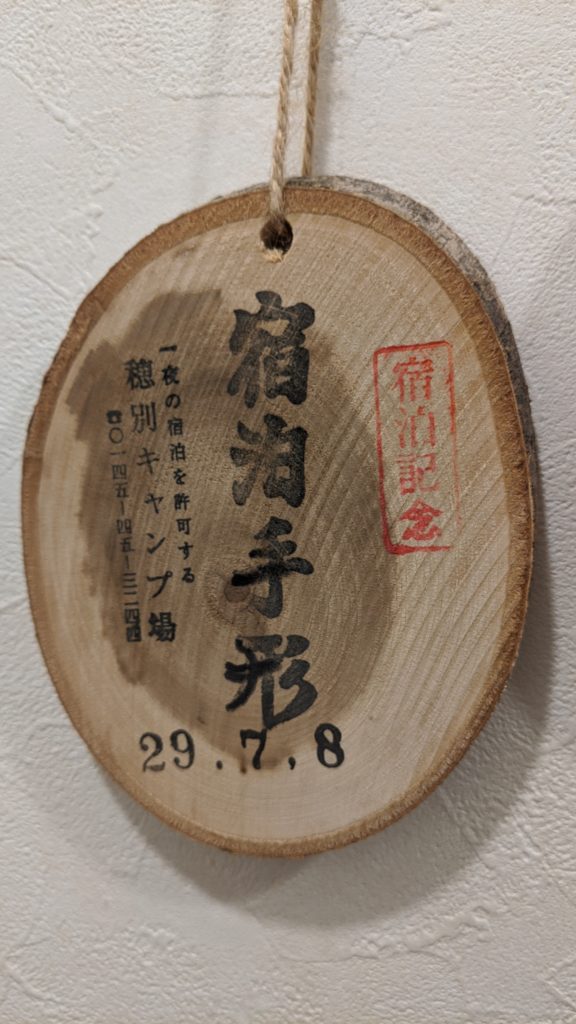 宿泊記念
宿泊手形
一夜の宿泊を許可する
穂別キャンプ場
☎〇一四五ー四五ー三二四四
29.7,8